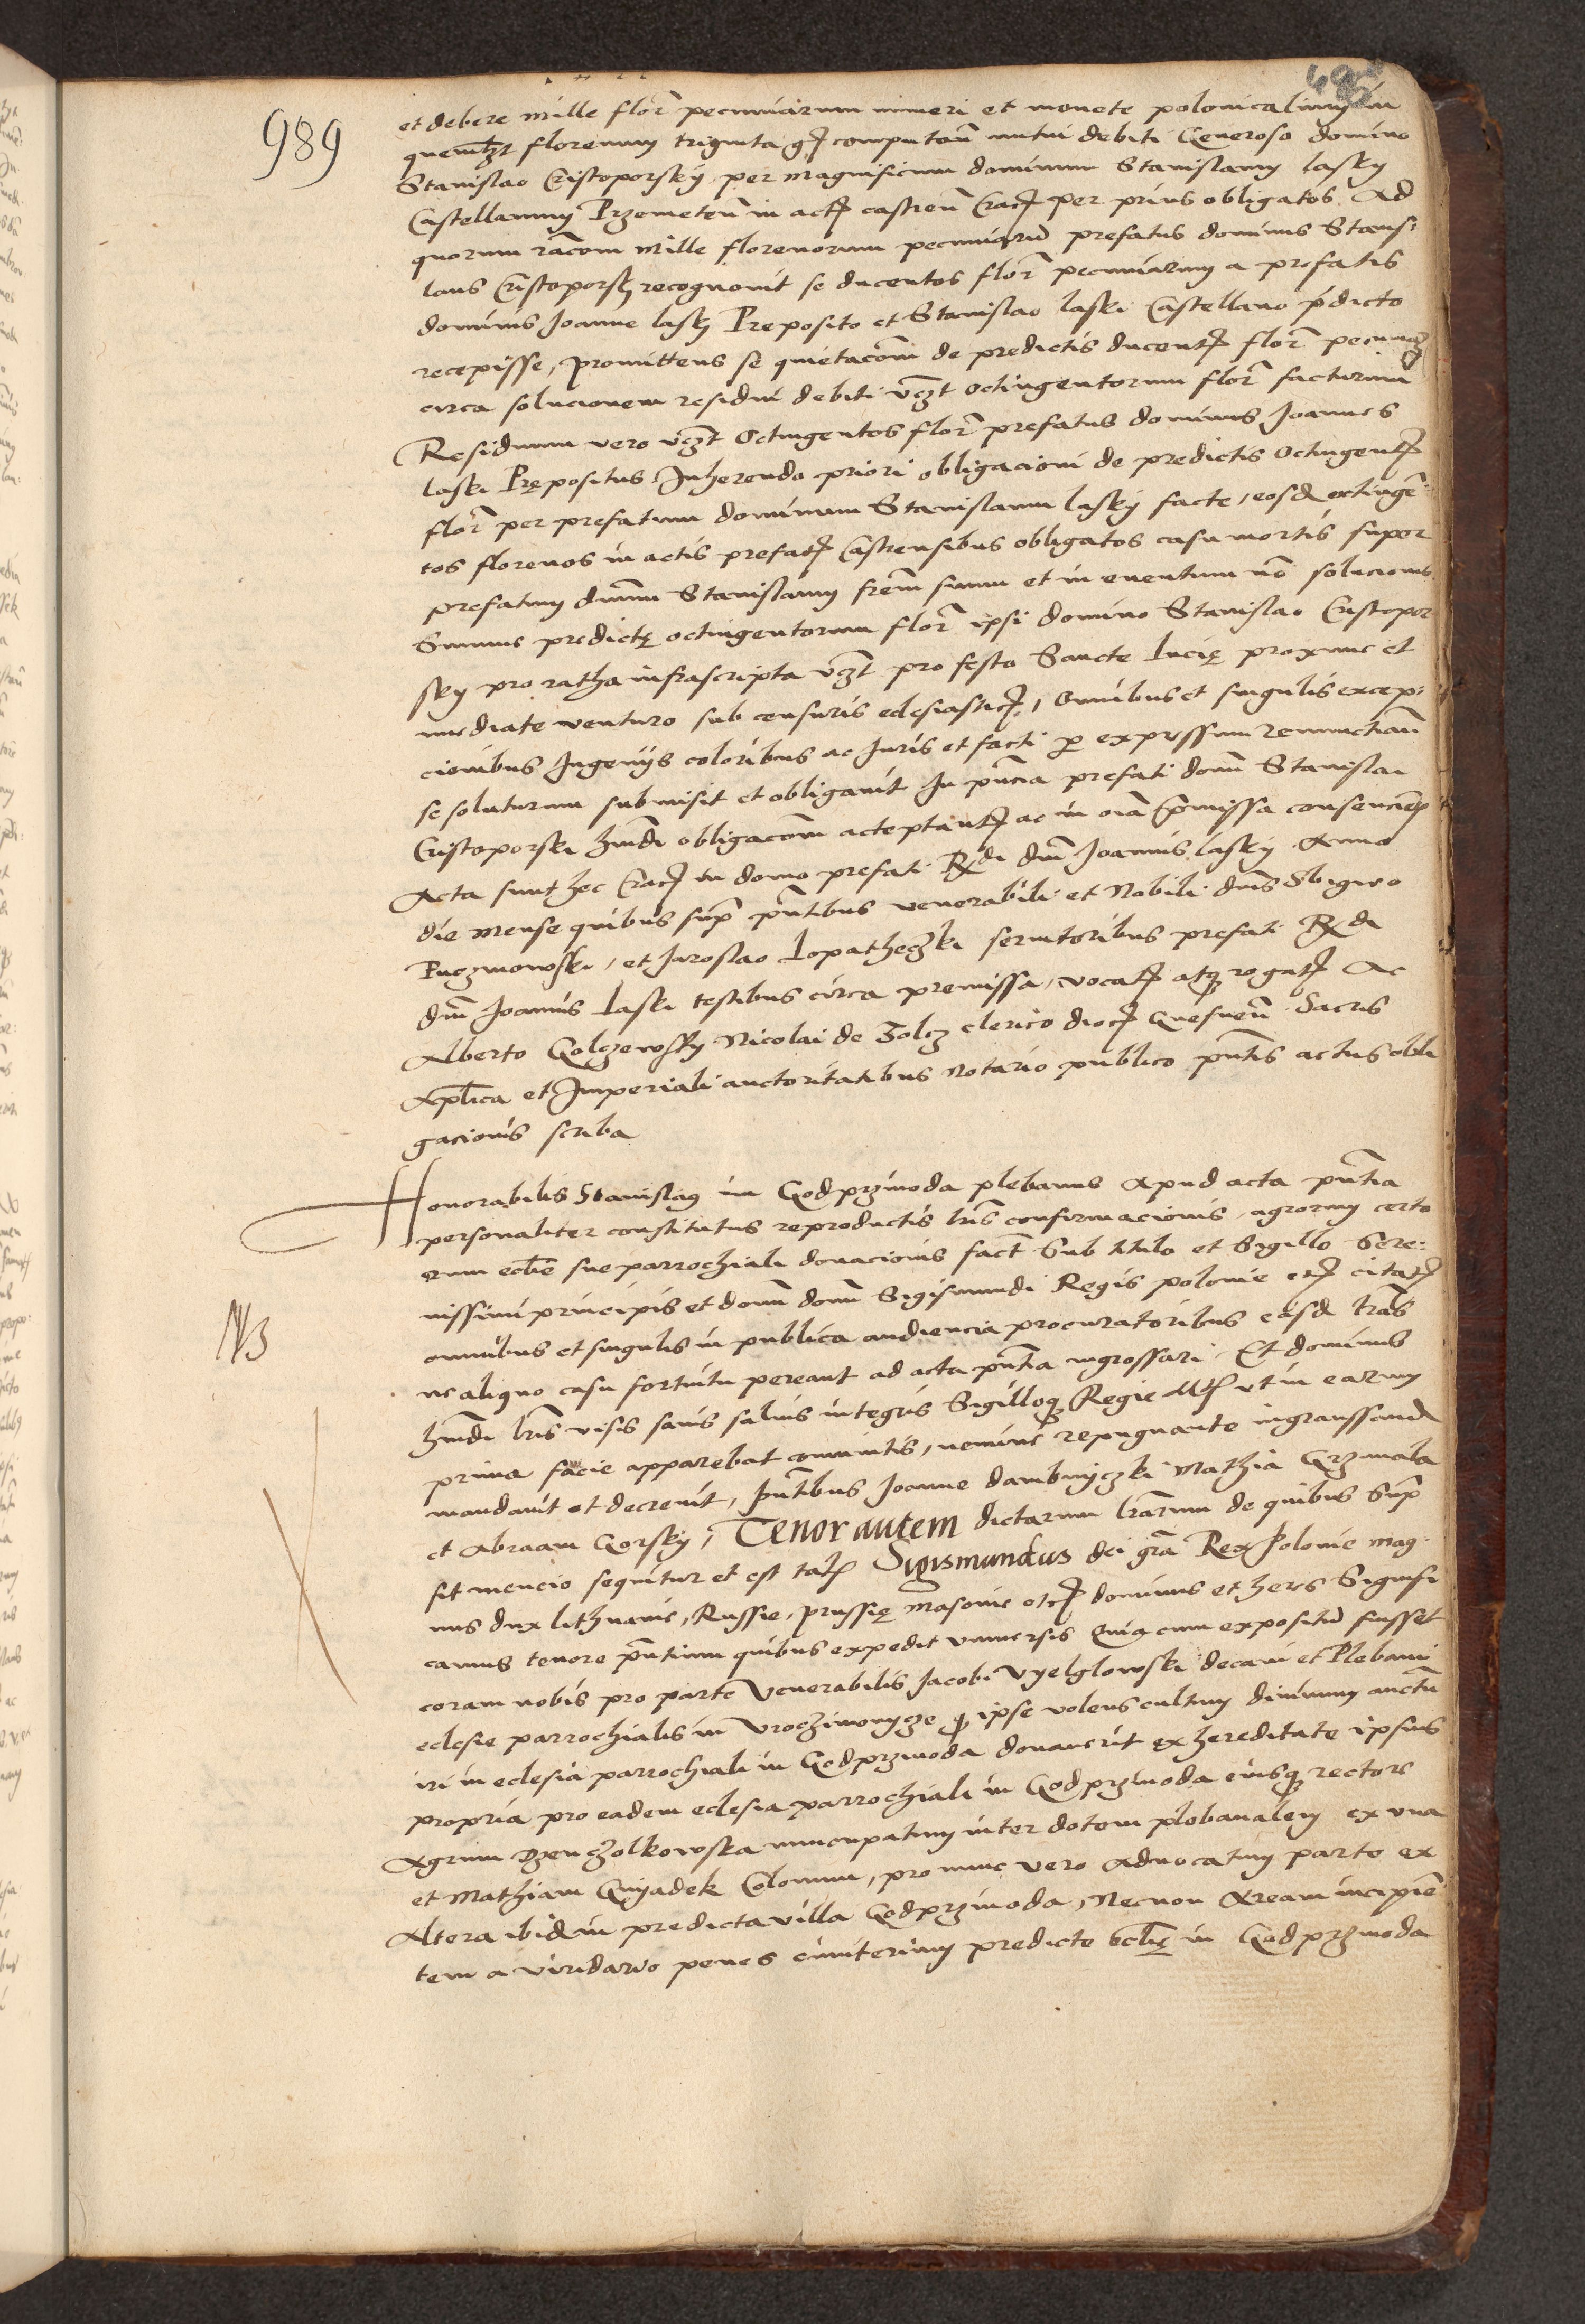 989
et debere mille flor pecuniarum numeri et monete polonicalium in
quemlzt florenum triginta gr computan mutui debiti Generoso domino
Stanislao Cristoporsky per magnificum dominum Stanislaum lasky
Castellanum Przemeten in act castren Crac per prius obligatos. Ad
quorum racom mille florenorum pecuniarum prefatus dominus Stanis:
laus Cristoporsky recognovit se ducentos flor pecuniarum a prefatis
dominis Joanne lasky Preposito et Stanislao laski Castellano pdicto
recepisse, promittens se quietacom de predictis ducent flor pecuniar
circa solucionem residui debiti vczt octingentorum flor facturum
Residuum vero vczt Octingentos flor prefatus dominus Joannes
laski Prepositus Inherendo priori obligacioni de predictis Octingent
flor per prefatum dominum Stanislaum lasky facte, eosd octingen
tos florenos in actis prefat Castrensibus obligatos casu mortis super
prefatum dnum Stanislaum frem suum et in eventum non solucionis
Summe predicte octingentorum flor ipsi domino Stanislao Cristopor
sky pro ratha infrascripta vczt pro festo Sancte lucie proxime et
mediate venturo sub censuris eclesiastic, omnibus et singulis excep:
cionibus Ingenys coloribus ac Juris et facti p expressum renunctian
se soluturum submisit et obligavit In pncia prefati domi Stanislai
Cristoporski hmdi obligacom acteptant ac in oia pmissa consencien
Acta sunt hec Crac in domo prefati Rdi dni Joannis lasky Anno
die mense quibus sup pntibus venerabili et Nobili dnis Sbigneo
Puczniowski, et Jaroslao Lopatheczki servitoribus prefati Rdi
dni Joannis Laski testibus circa premissa, vocat atq rogat Ac
Alberto Golczewsky Nicolai de Golcz clerico dioc Gnesnen Sacris
Aplica et Imperiali auctoritatibus Notario publico pntis actus obli
gacionis scriba
Honorabilis Stanislaus in Godprzinoda plebanus Apud acta pntia
personaliter constitutus reproductis lris confirmacionis, agrorum certo
rum eclie sue parrochiali donacionis fact Sub titulo et Sigillo Sere:
nissimi principis et domi domi Sigismundi Regis polonie etc citat
NB
omnibus et singulis in publica audiencia procuratoribus easd lras
ne aliquo casu fortuitu pereant ad acta pntia ingrossari. Et dominus
hmdi lris visis sanis salvis integris Sigilloq Regie Mtis ut in earum
prima facie apparebat comunitis, nemine repugnante ingraussand
mandavit et decrevit, pntibus Joanne dambniczki Mathia Grzimala
et Abraam Gorsky, Tenor autem dictarum lrarum de quibus Sup
fit mencio sequitur et est talis Sigismundus dei gra Rex Polonie Mag:
nus dux lithuanie, Russie, prussie Masovie etc dominus et heres Signifi
camus tenore pntium quibus expedit universis Quia cum expositum fuisset
coram nobis pro parte Venerabilis Jacobi Vyelglowski decani et Plebani
eclesie parrochialis in Wroczimowycze q ipse volens cultum divinum auctu
iri in eclesia parrochiali in Godprzinoda donaverit ex hereditate ipsius
propria pro eadem eclesia parrochiali in Godprzinoda eiusq rectore
Agrum Dzenczolkowska nuncupatum inter dotem plebanalem ex una
et Mathiam Gnyadek Colonum, pro nunc vero Advocatum parte ex
Altera ibid in predicta villa Godprzinoda, Necnon Aream incipien
tem a viridario penes cimiterium predicte eclie in Godprzinoda